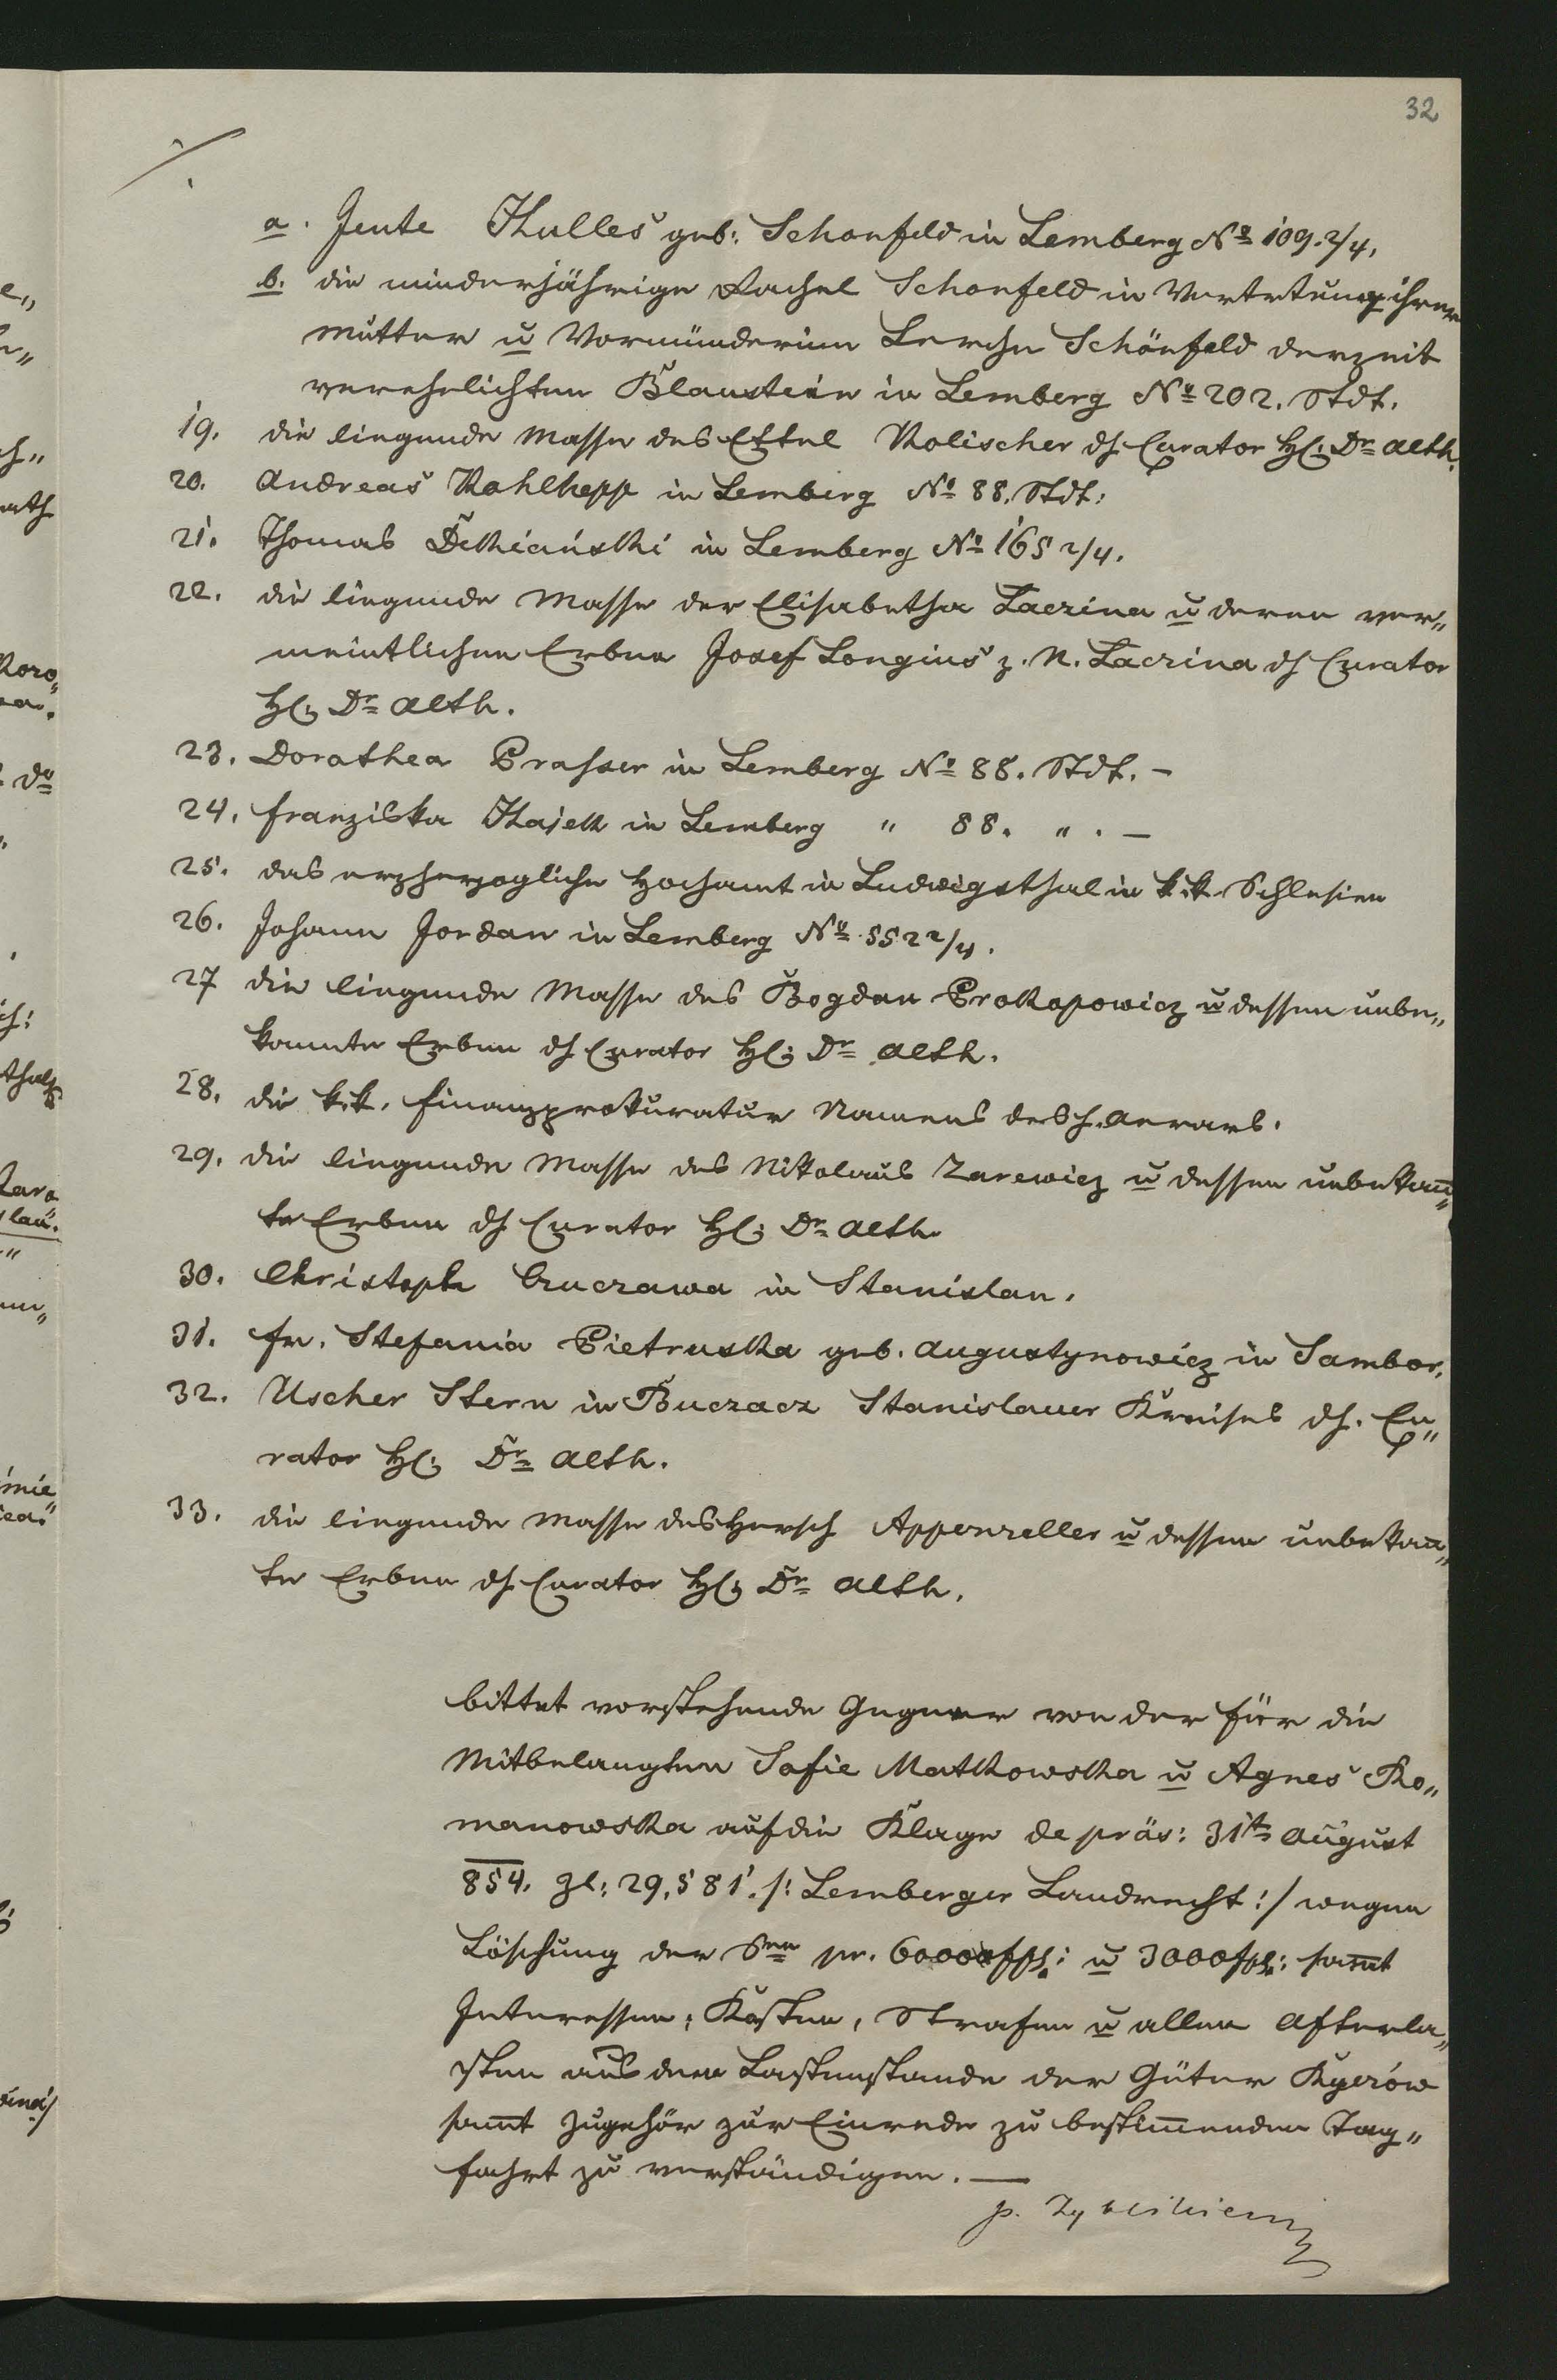 32
a. Jente Hulles geb: Schonfeld in Lemberg No 109. 2/4.
b. die minderjährige Rachel Schonfeld in Vertretung ihrer
Mutter u Vormünderinn Lerche Schönfeld derzeit
verehelichten Blaustein in Lemberg No 202. Stdt.
19. die liegende Masse des Ettel Kolischer dh Curator H: Dr Alth.
20. Andreas Kohlhepp in Lemberg No 88. Stdt.
21. Thomas Dekiański in Lemberg No 165 2/4.
22. die liegende Masse der Elisabetha Łaczina u deren ver„
meintlichen Erben Josef Longius z. N. Łaczina dh Curator
H: Dr Alth.
23. Dorathea Prasser in Lemberg No 88. Stdt. –
24. Franziska Hajek in Lemberg " 88. " . –
25. das erzherzogliche Hochamt in Ludwigsthal in k.k. Schlesien
26. Johann Jordan in Lemberg No 552 2/4.
27 die liegende Masse des Bogdan Prokopowicz u dessen unbe„
kannte Erben dh Curator H: Dr Alth.
28. die k.k. Finanzprokuratur Namens des h. Aerars.
29. die liegende Masse des Nikolaus Zarewicz u dessen unbekañ„
te Erben dh Curator H: Dr Alth.
30. Christoph Czuczawa in Stanislau.
31. Fr. Stefania Pietruska geb. Augustynowicz in Sambor.
32. Uscher Stern in Buczacz Stanislauer Kreises dh. Cu„
rator H: Dr Alth.
33. die liegende Masse des Hersch Appenzeller u dessen unbekañ„
te Erben dh Curator H: Dr Alth.
bittet vorstehende Gegner von der für die
Mitbelangten Sofie Matkowska u Agnes Ro„
manowska auf die Klage de präs: 31ten August
854. Zl: 29,581. /: Lemberger Landrecht :/ wegen
Löschung der Sen pr. 60000 fpl: u 3000 fpl: sam̃t
Interessen, Kosten, Strafen u allen Afterla„
sten aus dem Lastenstande der Güter Kyerów
sam̃t Zugehör zur Einrede zu bestim̃enden Tag„
fahrt zu verständigen. —